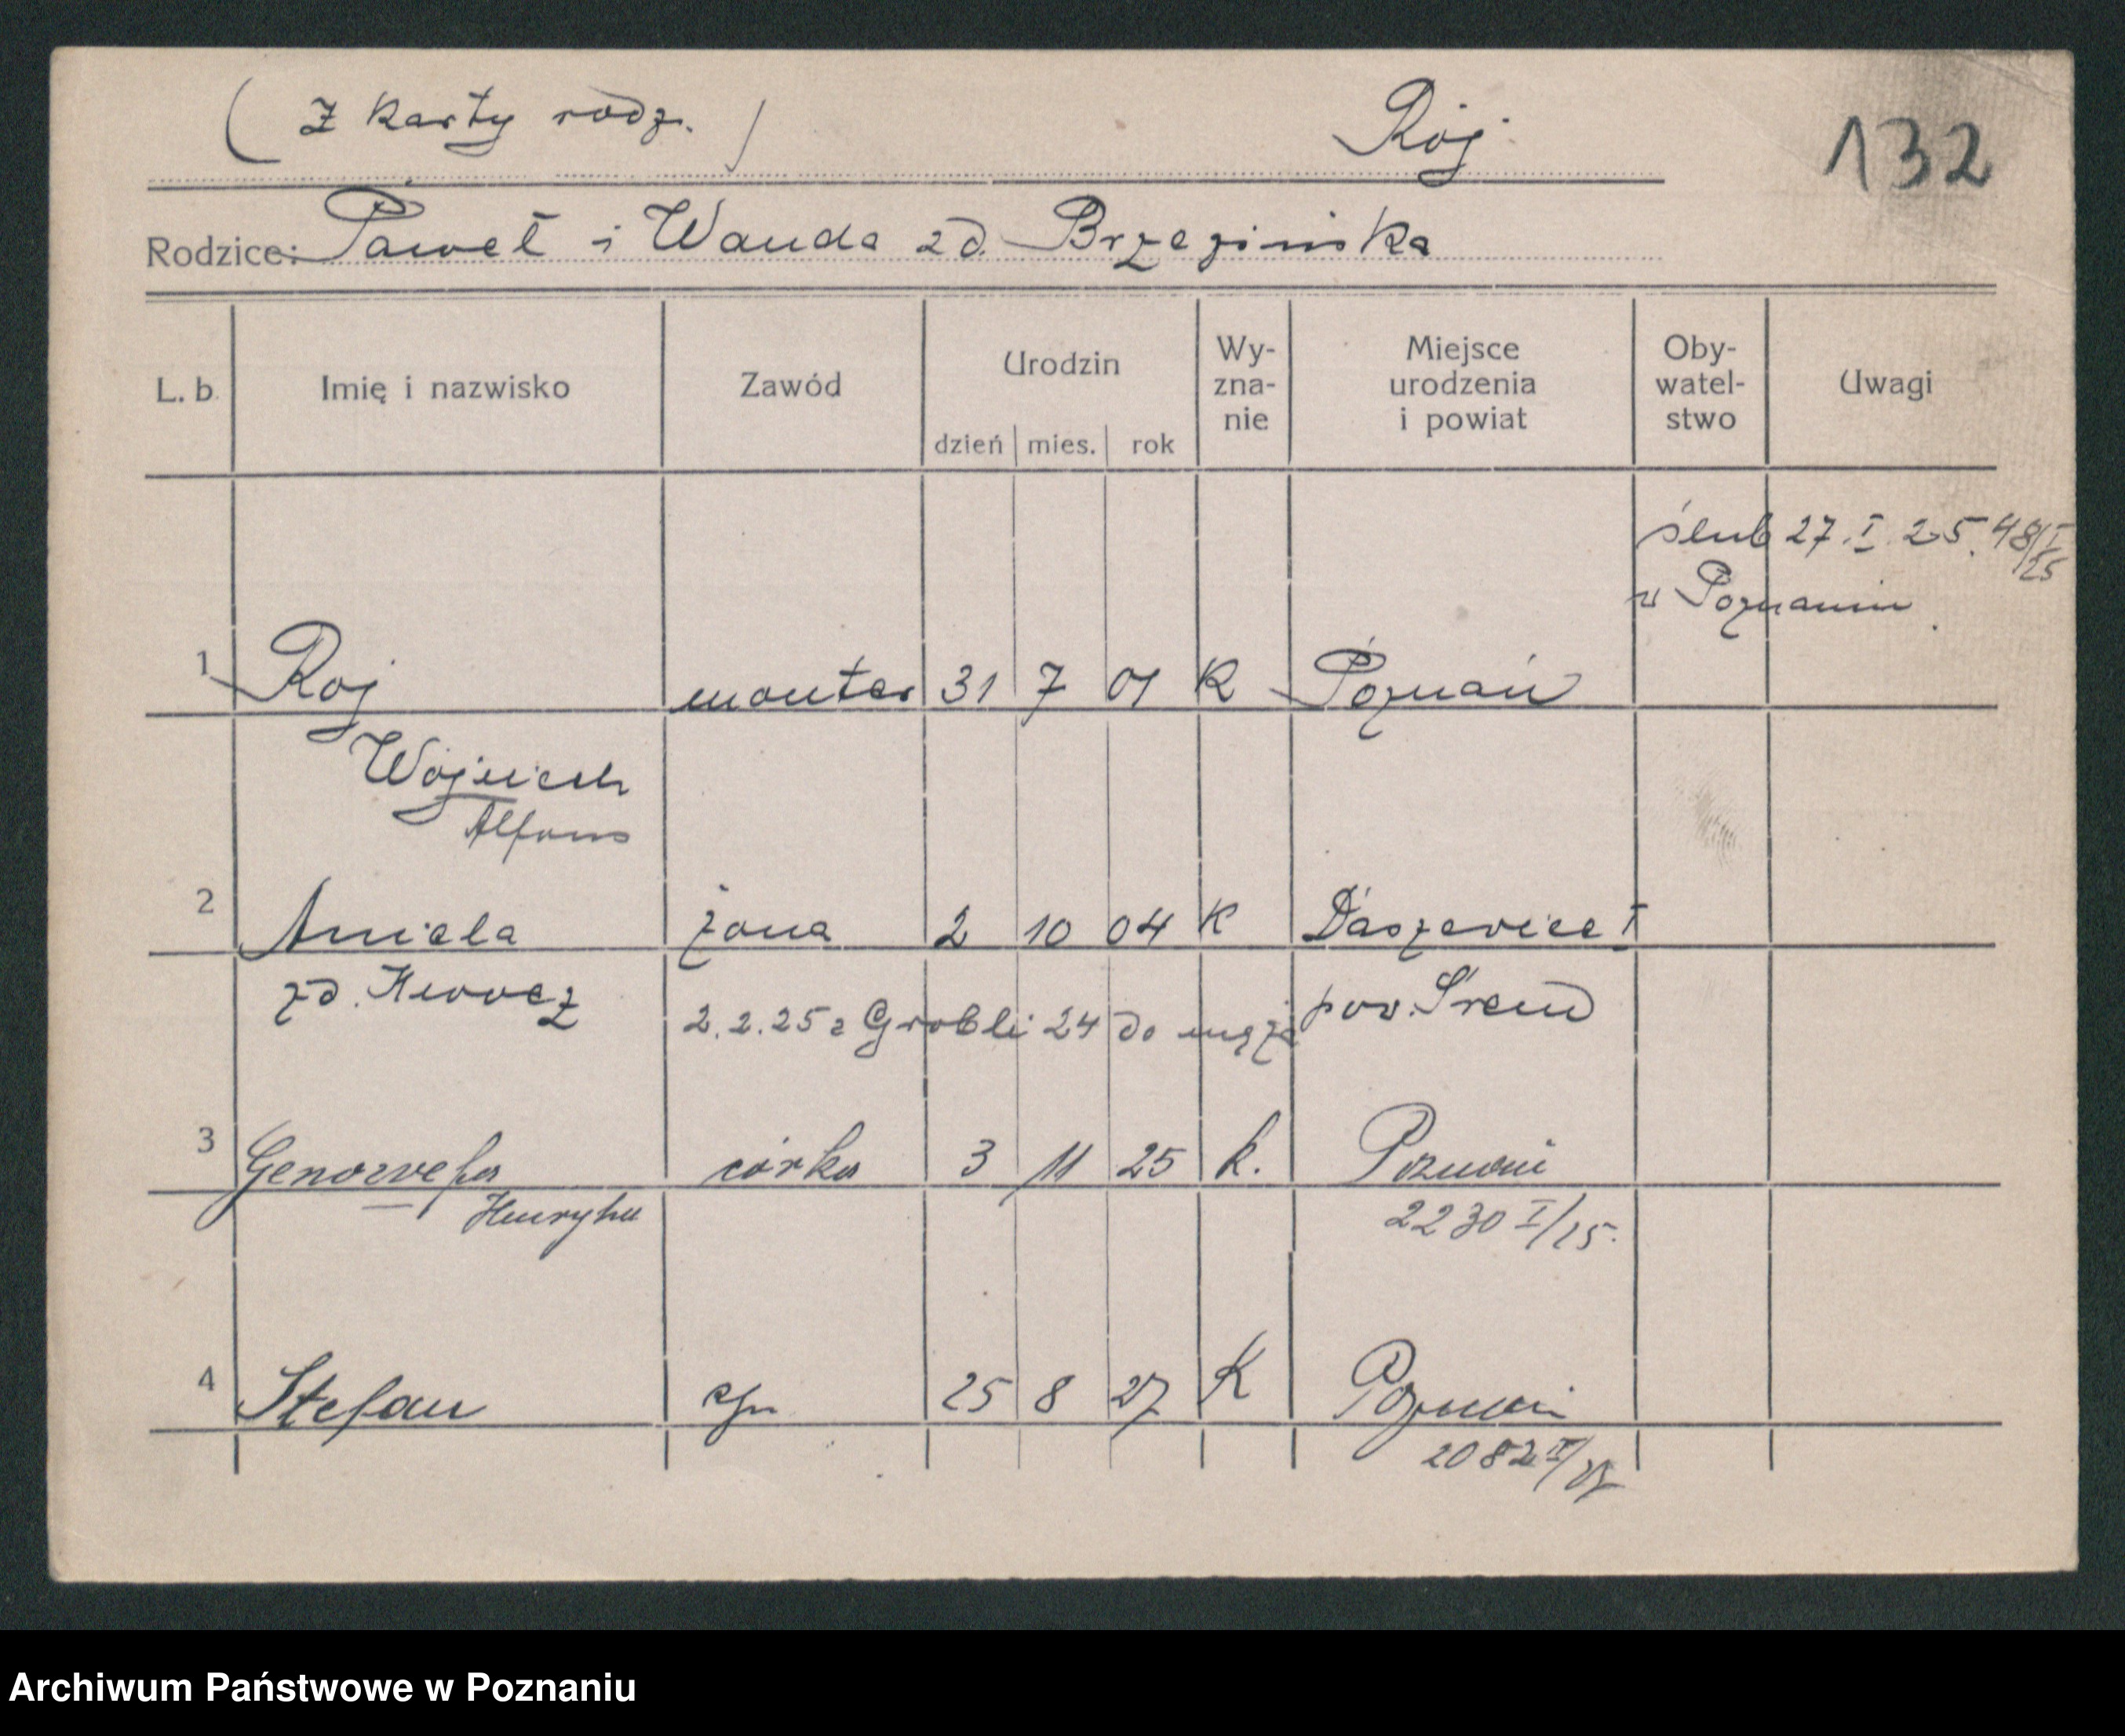 ( Z karty rodz. ) Rój 132
Rodzice: Paweł i Wanda zd. Brzezińska
L. b. Imię i nazwisko Zawód Urodzin dzień mies. rok Wy-zna-nie Miejsce urodzenia i powiat Oby-watel-stwo Uwagi
ślub 27. I. 25. 48/I/25
w Poznaniu.
1 Roj monter 31 7 01 K Poznań
Wojciech
Alfons
2 Aniela żona 2 10 04 K Daszewice
zd. pow. Śrem
2.2.25 z Grobli 24 do męża
3 Genowefa córka 3 11 25 k. Poznań
Henryka 2230 I/25.
4 Stefan syn 25 8 27 K Poznań
2082
Archiwum Państwowe w Poznaniu